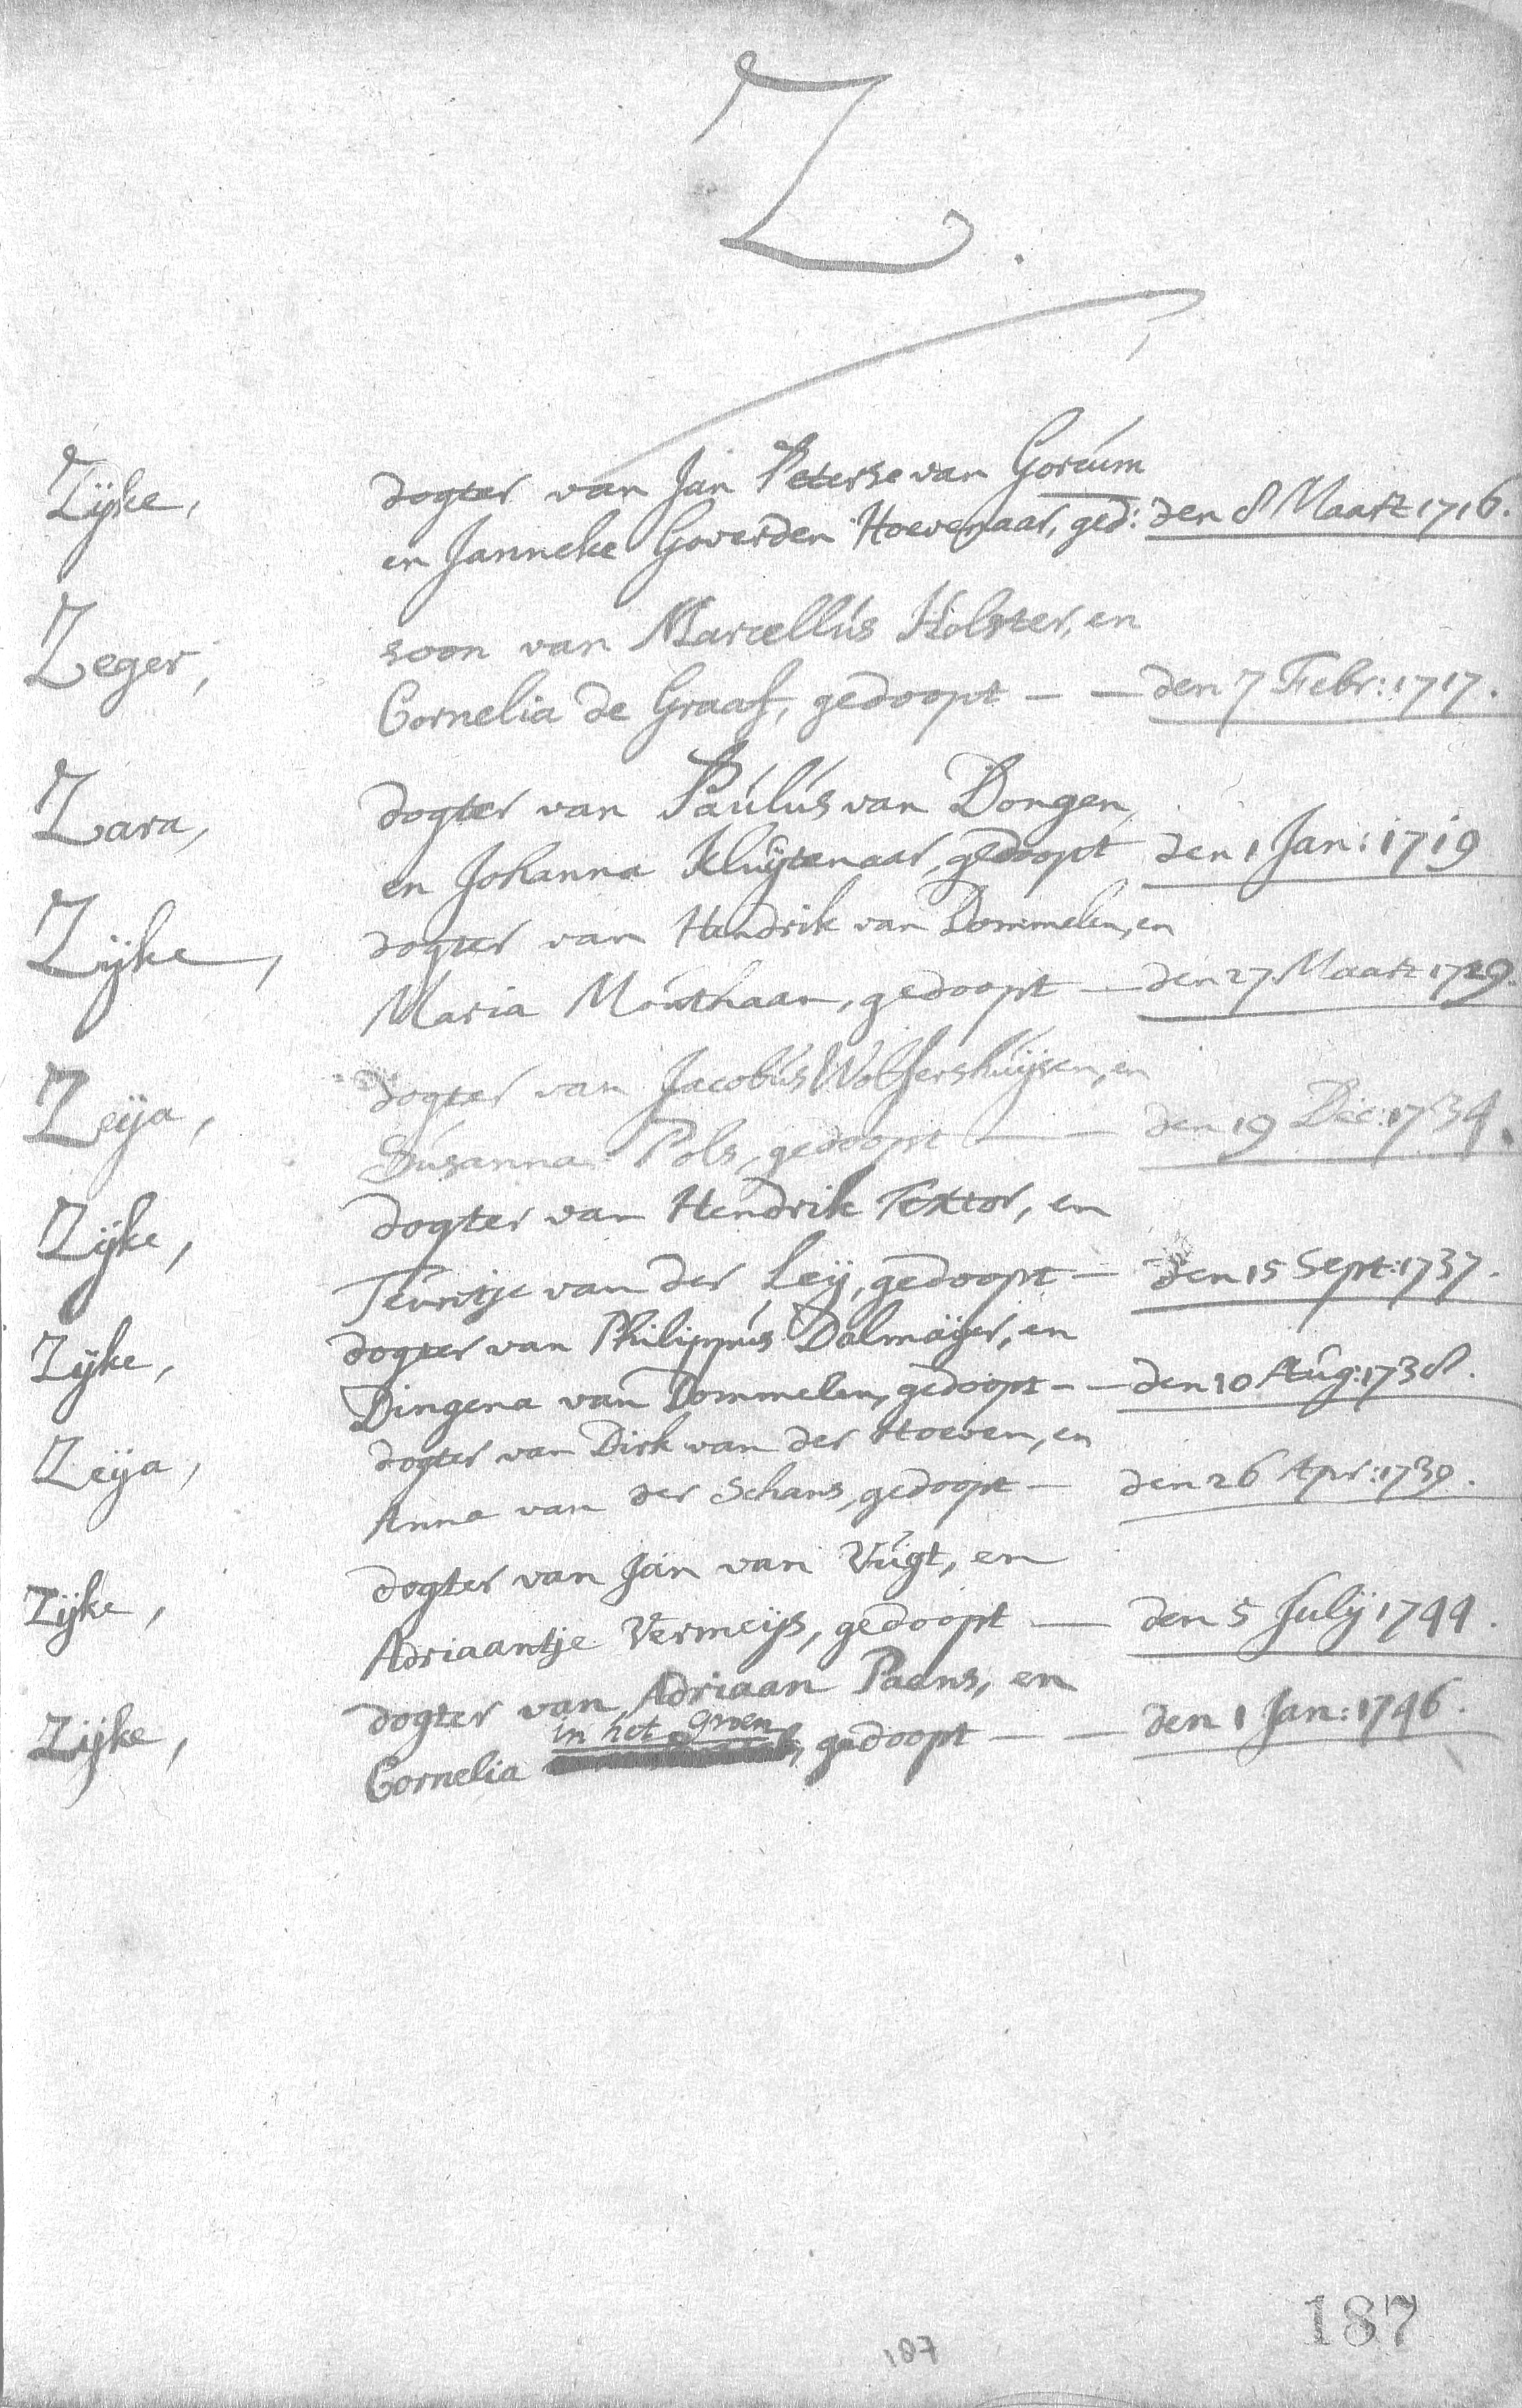 Z.
Zijke, dogter van Jan Peterse van Gorcum
en Janneke Goverden Hoevenaar, ged: den 8 Maart 1716.
Zeger, soon van Marcellus Holster, en
Cornelia de Graaf, gedoopt — — den 7 Febr: 1717.
Zara, dogter van Paulus van Dongen,
en Johanna Kluijtenaar, gedoopt den 1 Jan: 1719
Zijke, dogter van Hendrik van Dommelen, en
Maria Mouthaan, gedoopt — den 27 Maart 1729.
Zeija, dogter van Jacobus Wolfershuijsen, en
Susanna Pols, gedoopt — — den 19 Dec: 1734.
Zijke, dogter van Hendrik Textor, en
Teuntje van der Leij, gedoopt — den 15 Sept: 1737.
Zijke, dogter van Philippus Dalmaijer, en
Dingena van Dommelen, gedoopt - — den 10 Aug: 1738.
Zeija, dogter van Dirk van der Hoeven, en
Anna van der Schans, gedoopt — den 26 Apr: 1739.
Zijke, dogter van Jan van Vugt, en
Adriaantje Vermeijs, gedoopt — den 5 Julij 1744.
Zijke, dogter van Adriaan Paans, en
in het groen
Cornelia gedoopt — — den 1 Jan: 1746.
187
187